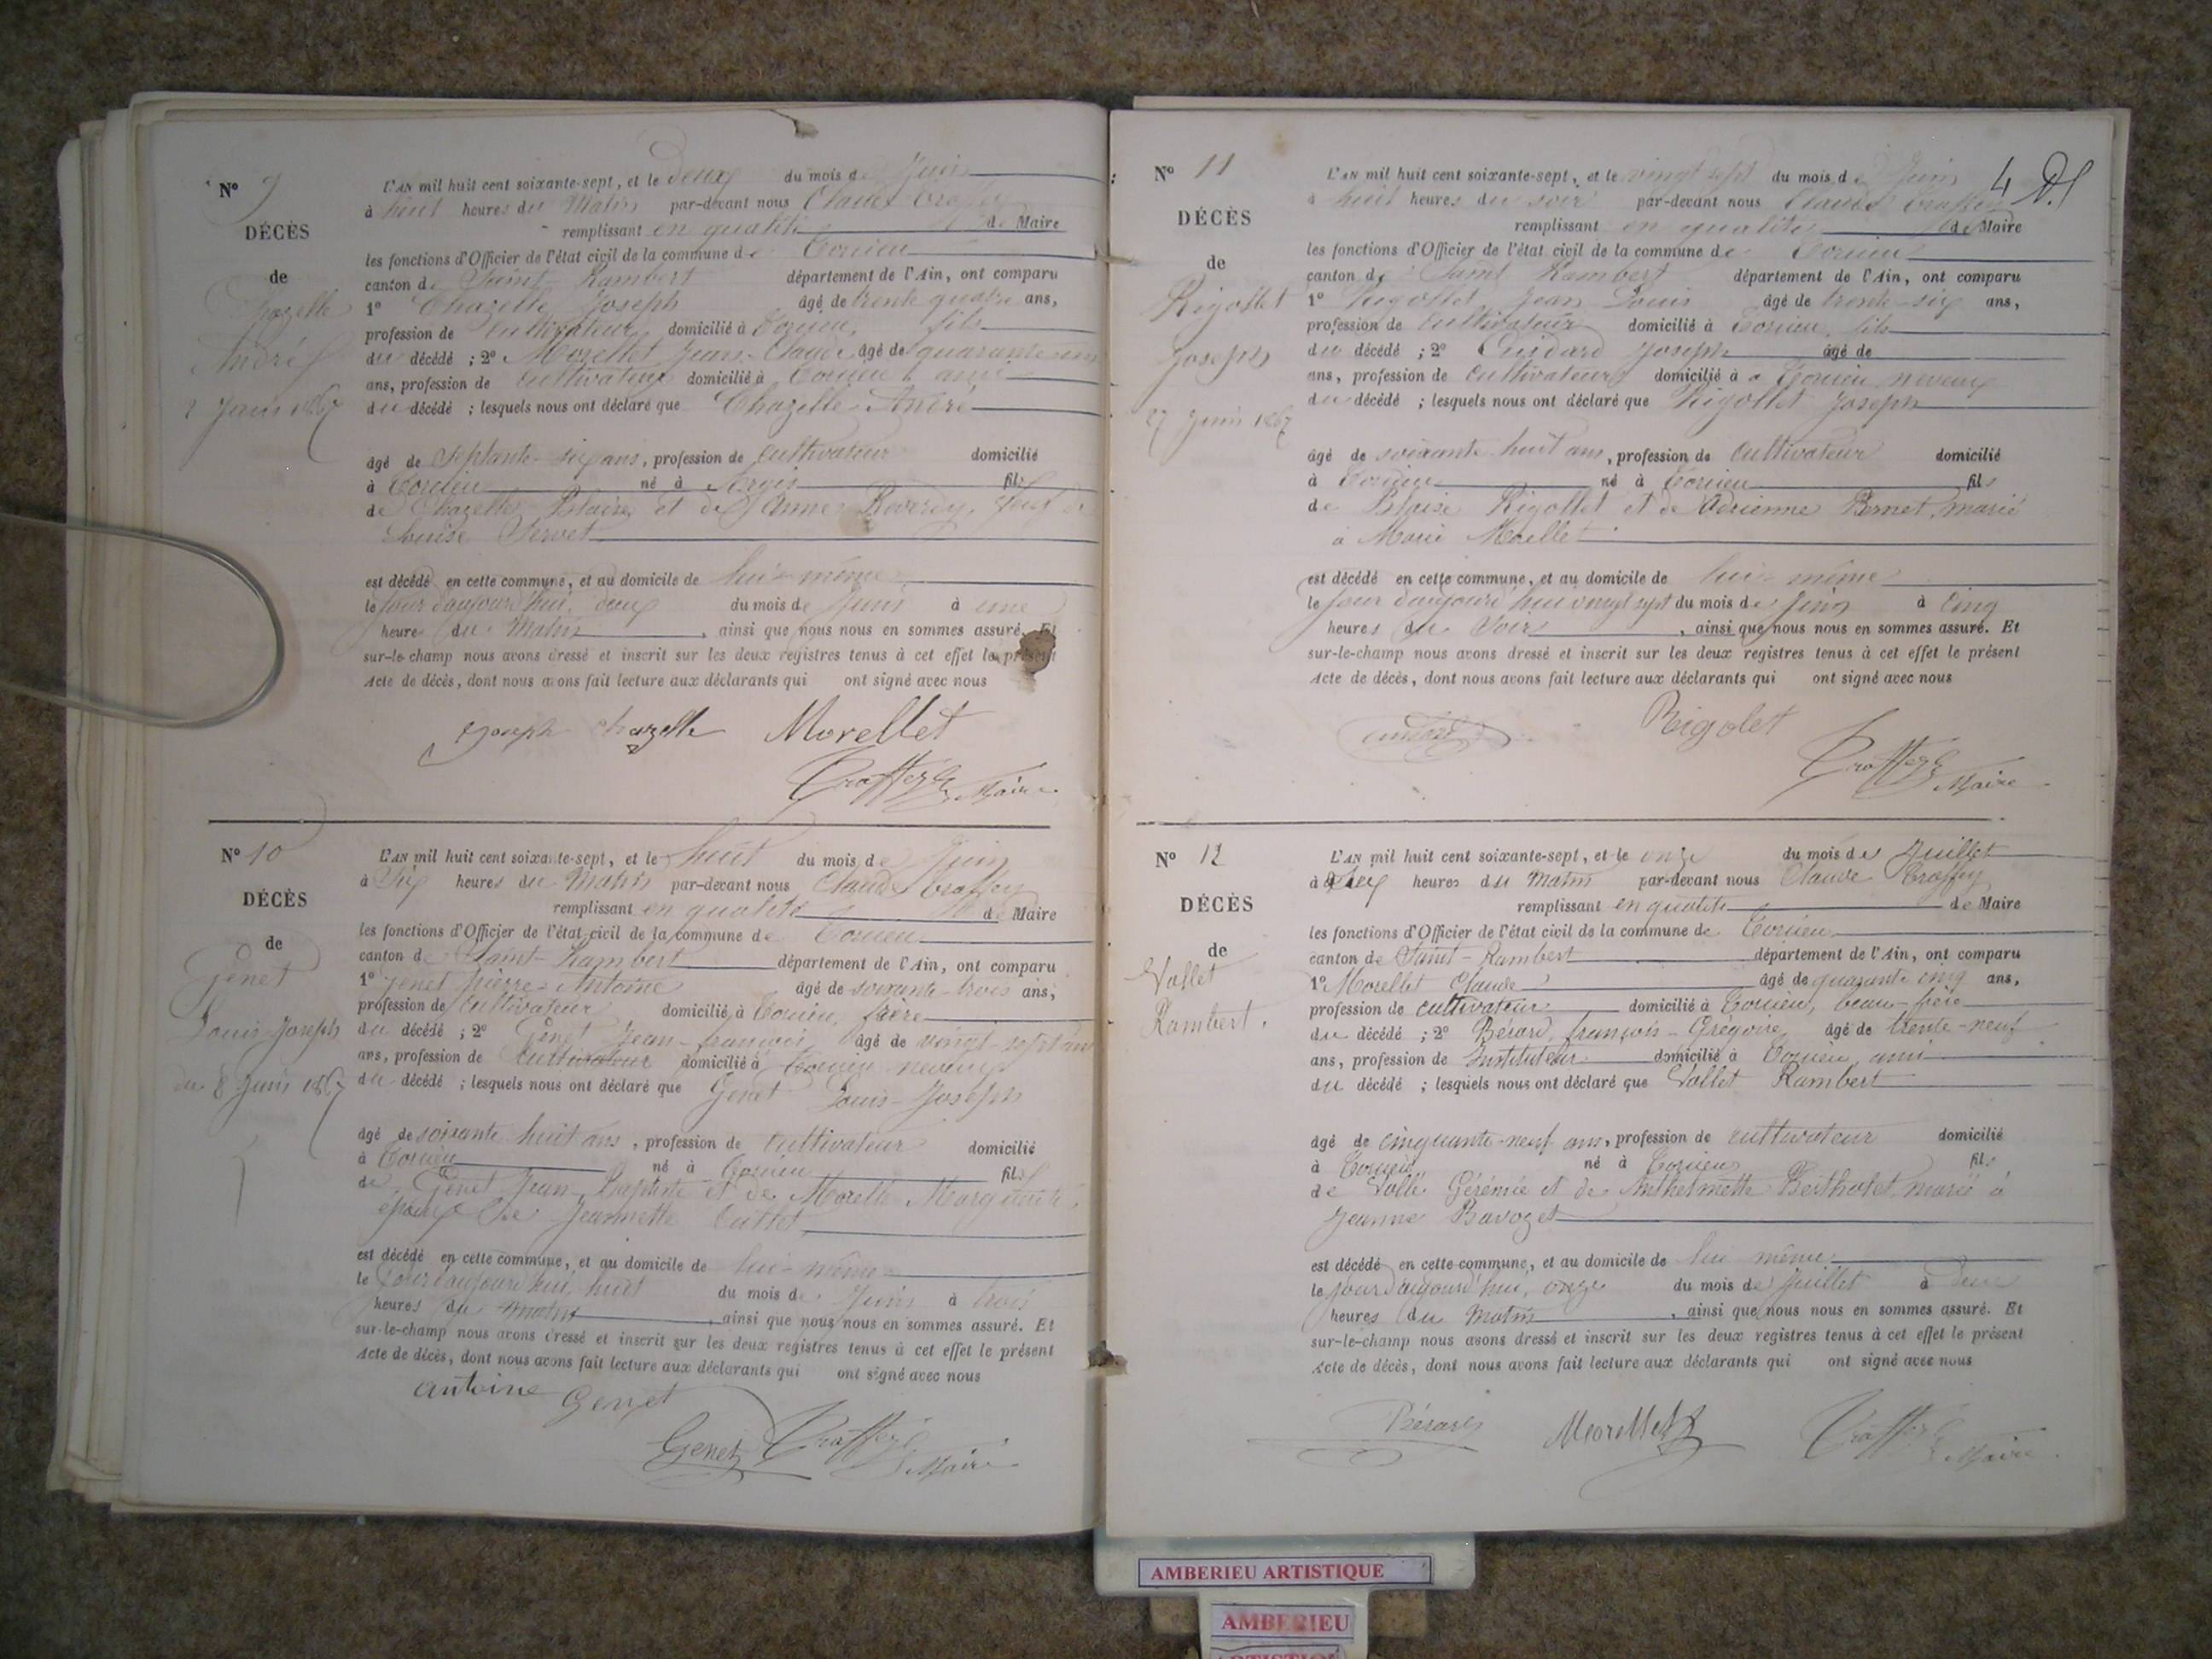 N° 9
DÉCÈS
de
Chazelle
André
2 Juin 1867
L'AN mil huit cent soixante-sept, et le deux du mois de Juin
à huit heures du Matin par-devant nous Claude Traffay
remplissant en qualité de Maire
les fonctions d'Officier de l'état civil de la commune de Torcieu
canton de Saint Rambert département de l'Ain, ont comparu
1° Chazelle Joseph âgé de trente quatre ans,
profession de Cultivateur domicilié à Torcieu, fils
du décédé ; 2° Morellet Jean-Claude âgé de quarante un
ans, profession de Cultivateur domicilié à Torcieu, ami
du décédé ; lesquels nous ont déclaré que Chazelle André
âgé de Septante-six ans, profession de Cultivateur domicilié
à Torcieu né à Argis fils
de Chazelle Blaise et de Anne Reverdy, veuf de
Louise Servet
est décédé en cette commune, et au domicile de lui-même
le jour d'aujourd'hui, deux du mois de Juin à une
heure du Matin, ainsi que nous nous en sommes assuré. Et
sur-le-champ nous avons dressé et inscrit sur les deux registres tenus à cet effet le présent
Acte de décès, dont nous avons fait lecture aux déclarants qui ont signé avec nous
Joseph chazelle Morellet
Traffey Maire
N° 10
DÉCÈS
de
Genet
Louis-Joseph
du 8 Juin 1867
L'AN mil huit cent soixante-sept, et le huit du mois de Juin
à Six heures du Matin par-devant nous Claude Traffey
remplissant en qualité de Maire
les fonctions d'Officier de l'état civil de la commune de Torcieu
canton de Saint-Rambert département de l'Ain, ont comparu
1° Genet Pierre-Antoine âgé de soixante-trois ans,
profession de Cultivateur domicilié à Torcieu, frère
du décédé ; 2° Genet Jean-françois, âgé de vingt-sept ans
ans, profession de Cultivateur domicilié à Torcieu neveux
du décédé ; lesquels nous ont déclaré que Genet Louis-Joseph
âgé de soixante huit ans, profession de Cultivateur domicilié
à Torcieu né à Torcieu fils
de Genet Jean Baptiste et de Morelle Marguerite,
époux de Jeannette
est décédé en cette commune, et au domicile de lui-même
le Jour d'aujourd'hui, huit du mois de Juin à trois
heures du matin, ainsi que nous nous en sommes assuré. Et
sur-le-champ nous avons dressé et inscrit sur les deux registres tenus à cet effet le présent
Acte de décès, dont nous avons fait lecture aux déclarants qui ont signé avec nous
antoine Genet
Genet Traffey Maire
4 D.
N° 11
DÉCÈS
de
Rigollet
Joseph
27 Juin 1867
L'AN mil huit cent soixante-sept, et le vingt sept du mois de Juin
à huit heures du soir par-devant nous Claude Traffey
remplissant en qualité de Maire
les fonctions d'Officier de l'état civil de la commune de Torcieu
canton de Saint Rambert département de l'Ain, ont comparu
1° Rigollet Jean Louis âgé de trente-six ans,
profession de Cultivateur domicilié à Torcieu, fils
du décédé ; 2° Joseph âgé de
ans, profession de Cultivateur domicilié à Torcieu, neveux
du décédé ; lesquels nous ont déclaré que Rigollet Joseph
âgé de soixante huit ans, profession de Cultivateur domicilié
à Torcieu né à Torcieu fils
de Blaise Rigollet et de Adrienne Bernet, marié
à Marie Morellet
est décédé en cette commune, et au domicile de lui-même
le Jour d'aujourd'hui vingt sept du mois de Juin à Cinq
heures du Soir, ainsi que nous nous en sommes assuré. Et
sur-le-champ nous avons dressé et inscrit sur les deux registres tenus à cet effet le présent
Acte de décès, dont nous avons fait lecture aux déclarants qui ont signé avec nous
Rigolet
Traffey Maire
N° 12
DÉCÈS
de
Vollet
Rambert.
L'AN mil huit cent soixante-sept, et le onze du mois de Juillet
à Six heures du Matin par-devant nous Claude Traffey
remplissant en qualité de Maire
les fonctions d'Officier de l'état civil de la commune de Torcieu
canton de Saint-Rambert département de l'Ain, ont comparu
1° Morellet Claude âgé de quarante cinq ans,
profession de cultivateur domicilié à Torcieu, beau-frère
du décédé ; 2° Bérard, françois-Grégoire, âgé de trente-neuf
ans, profession de Instituteur domicilié à Torcieu, ami
du décédé ; lesquels nous ont déclaré que Vollet Rambert
âgé de cinquante-neuf ans, profession de cultivateur domicilié
à Torcieu né à Torcieu fils
de Gérémie et de Anthelmette Bertholet, marié à
Jeanne Bavozet
est décédé en cette commune, et au domicile de lui même
le jour d'aujourd'hui, onze du mois de Juillet à deux
heures du Matin, ainsi que nous nous en sommes assuré. Et
sur-le-champ nous avons dressé et inscrit sur les deux registres tenus à cet effet le présent
Acte de décès, dont nous avons fait lecture aux déclarants qui ont signé avec nous
Bérard Morellet Traffey Maire
AMBERIEU ARTISTIQUE
AMBERIEU
ARTISTIQUE